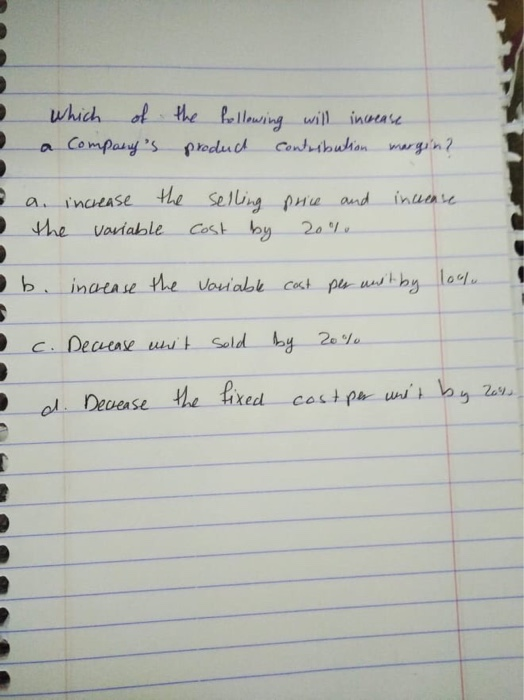 which of the following will increase
a Company's product contribution margin?
a. increase the selling price and increase
the variable cost by 20%
b. increase the variable cost per unit by 10%
c. Decrease unit sold by 20%
d. Decrease the fixed cost per unit by 20%